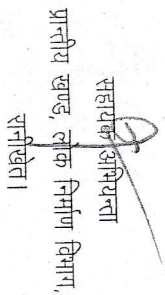 सहायक अभियन्ता
प्रान्तीय खण्ड, लोक निर्माण विभाग,
रानीखेत।